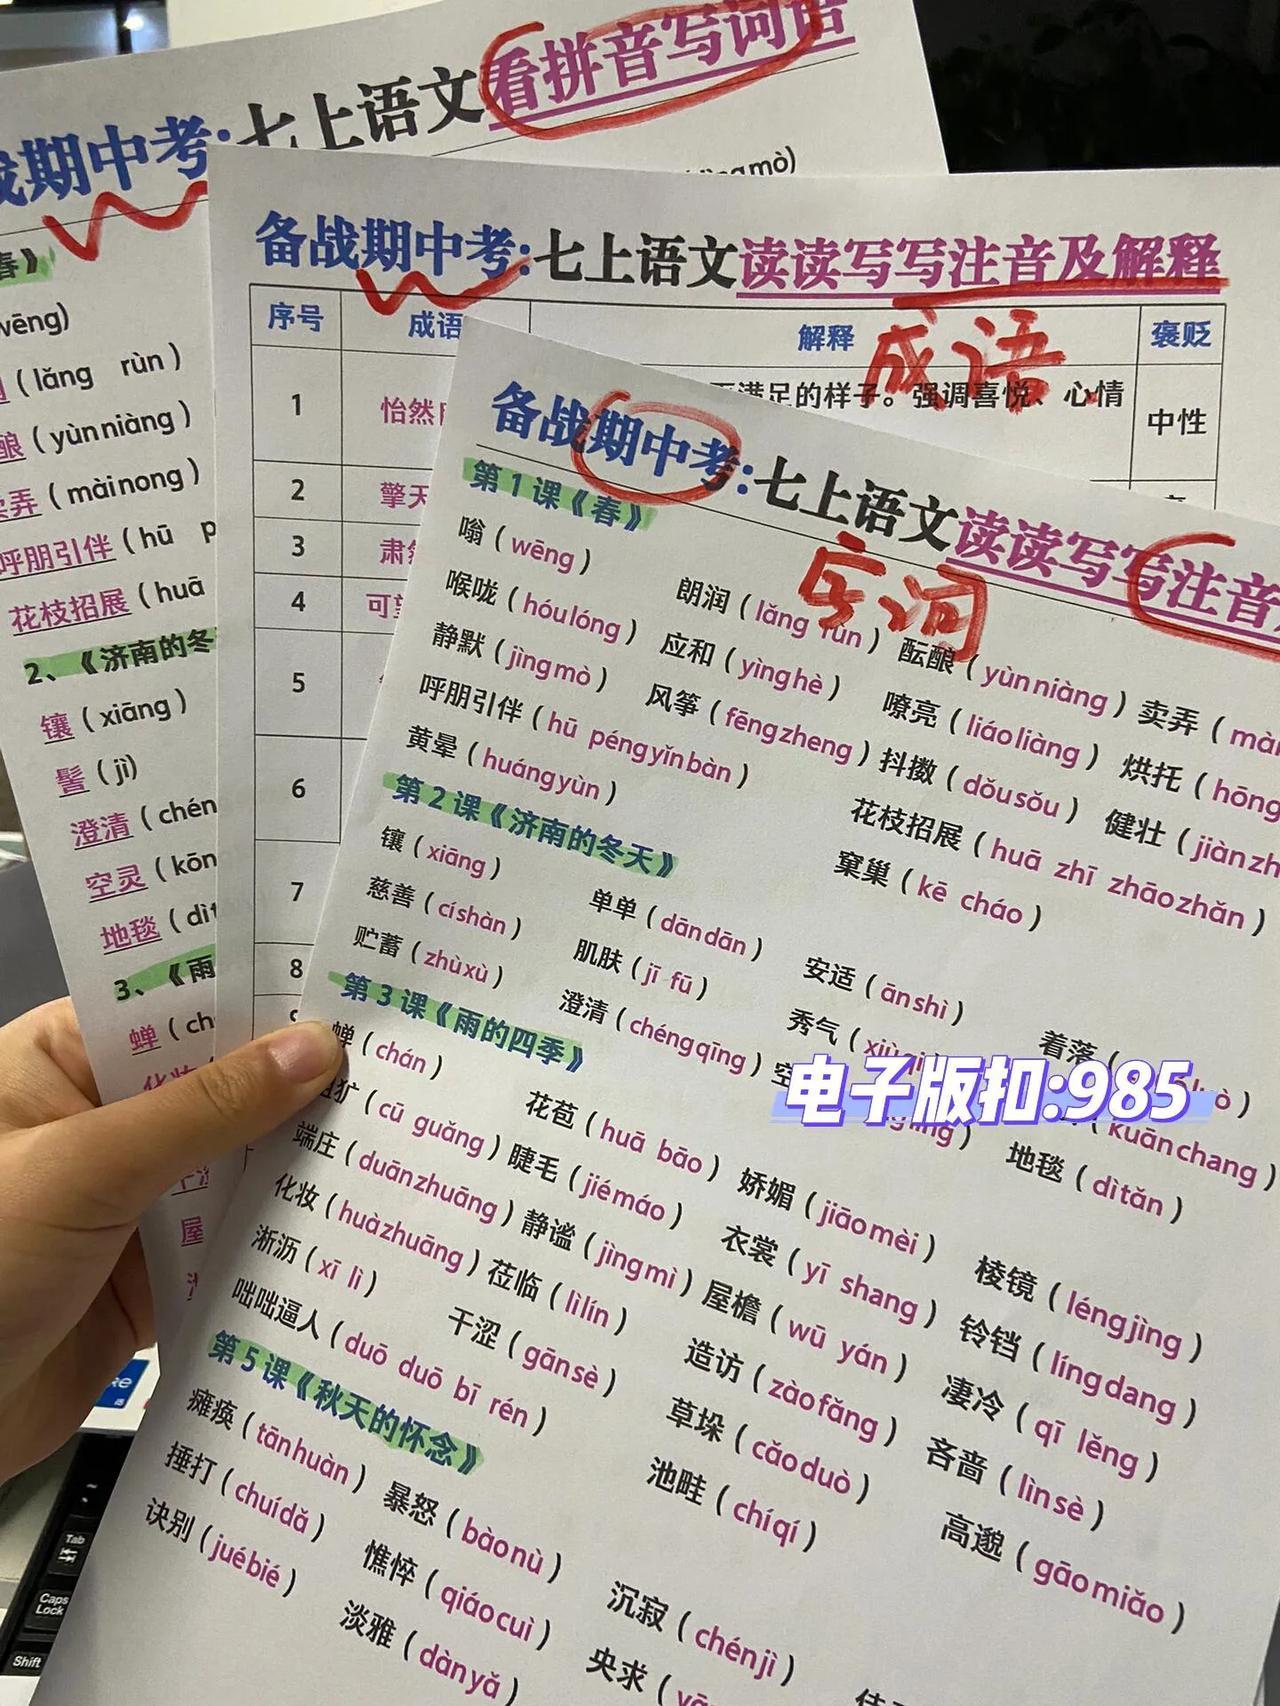 备战期中考:七上语文看拼音写词语
春》
wēng)
(lǎng rùn)
酿(yùnniàng)
卖弄(màinong)
呼朋引伴(hū p
花枝招展(huā
2、《济南的冬
镶(xiāng)
髻(jì)
澄清(chén
空灵(kōn
地毯(dìt
3、《雨
蝉(ch
化妆
屋
备战期中考:七上语文读读写写注音及解释
成语
序号 成语 解释 褒贬
1 怡然 满足的样子。强调喜悦、心情 中性
2 擎天
3 肃然
4 可望
5
6
7
8
备战期中考:七上语文读读写写注音
实词
第1课《春》
嗡(wēng) 朗润(lǎng rùn) 酝酿(yùnniàng) 卖弄(mài
喉咙(hóulóng) 应和(yìnghè) 嘹亮(liáoliàng) 烘托(hōng
静默(jìngmò) 风筝(fēngzheng) 抖擞(dǒusǒu) 健壮(jiànzh
呼朋引伴(hū péngyǐnbàn) 花枝招展(huā zhī zhāozhǎn)
黄晕(huángyùn) 窠巢(kē cháo)
第2课《济南的冬天》
镶(xiāng) 单单(dāndān) 安适(ānshì) 着落(
慈善(císhàn) 肌肤(jī fū) 秀气(xiùqi
(kuānchang)
贮蓄(zhùxù) 澄清(chéngqīng) 空 地毯(dìtǎn)
电子版扣:985
第3课《雨的四季》
蝉(chán) 花苞(huā bāo) 娇媚(jiāomèi) 棱镜(léngjìng)
粗犷(cū guǎng) 睫毛(jiémáo) 衣裳(yī shang) 铃铛(língdang)
端庄(duānzhuāng) 静谧(jìngmì) 屋檐(wū yán) 凄冷(qī lěng)
化妆(huàzhuāng) 莅临(lìlín) 造访(zàofǎng) 吝啬(lìnsè)
淅沥(xī lì) 干涩(gānsè) 草垛(cǎoduò) 高邈(gāomiǎo)
咄咄逼人(duō duō bī rén) 池畦(chíqí)
第5课《秋天的怀念》
瘫痪(tānhuàn) 暴怒(bàonù) 沉寂(chénjì)
捶打(chuídǎ) 憔悴(qiáocuì) 央求(yā
诀别(juébié) 淡雅(dànyǎ)
Tab
Caps Lock
Shift